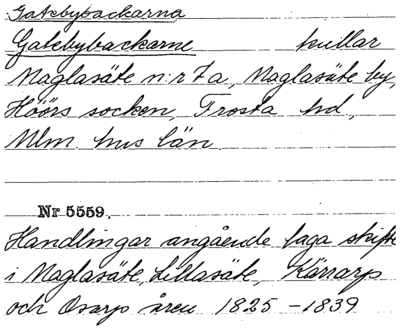 Gatebybackarna
Gatebybackarne kullar
Maglasäte n:r 7 a, Maglasäte by,
Höörs socken, Frosta hd,
Mlm. hus län.
Nr 5559.
Handlingar angående laga skifte
i Maglasäte, Lillasäte, Kärrarp
och Osarp åren 1825-1839